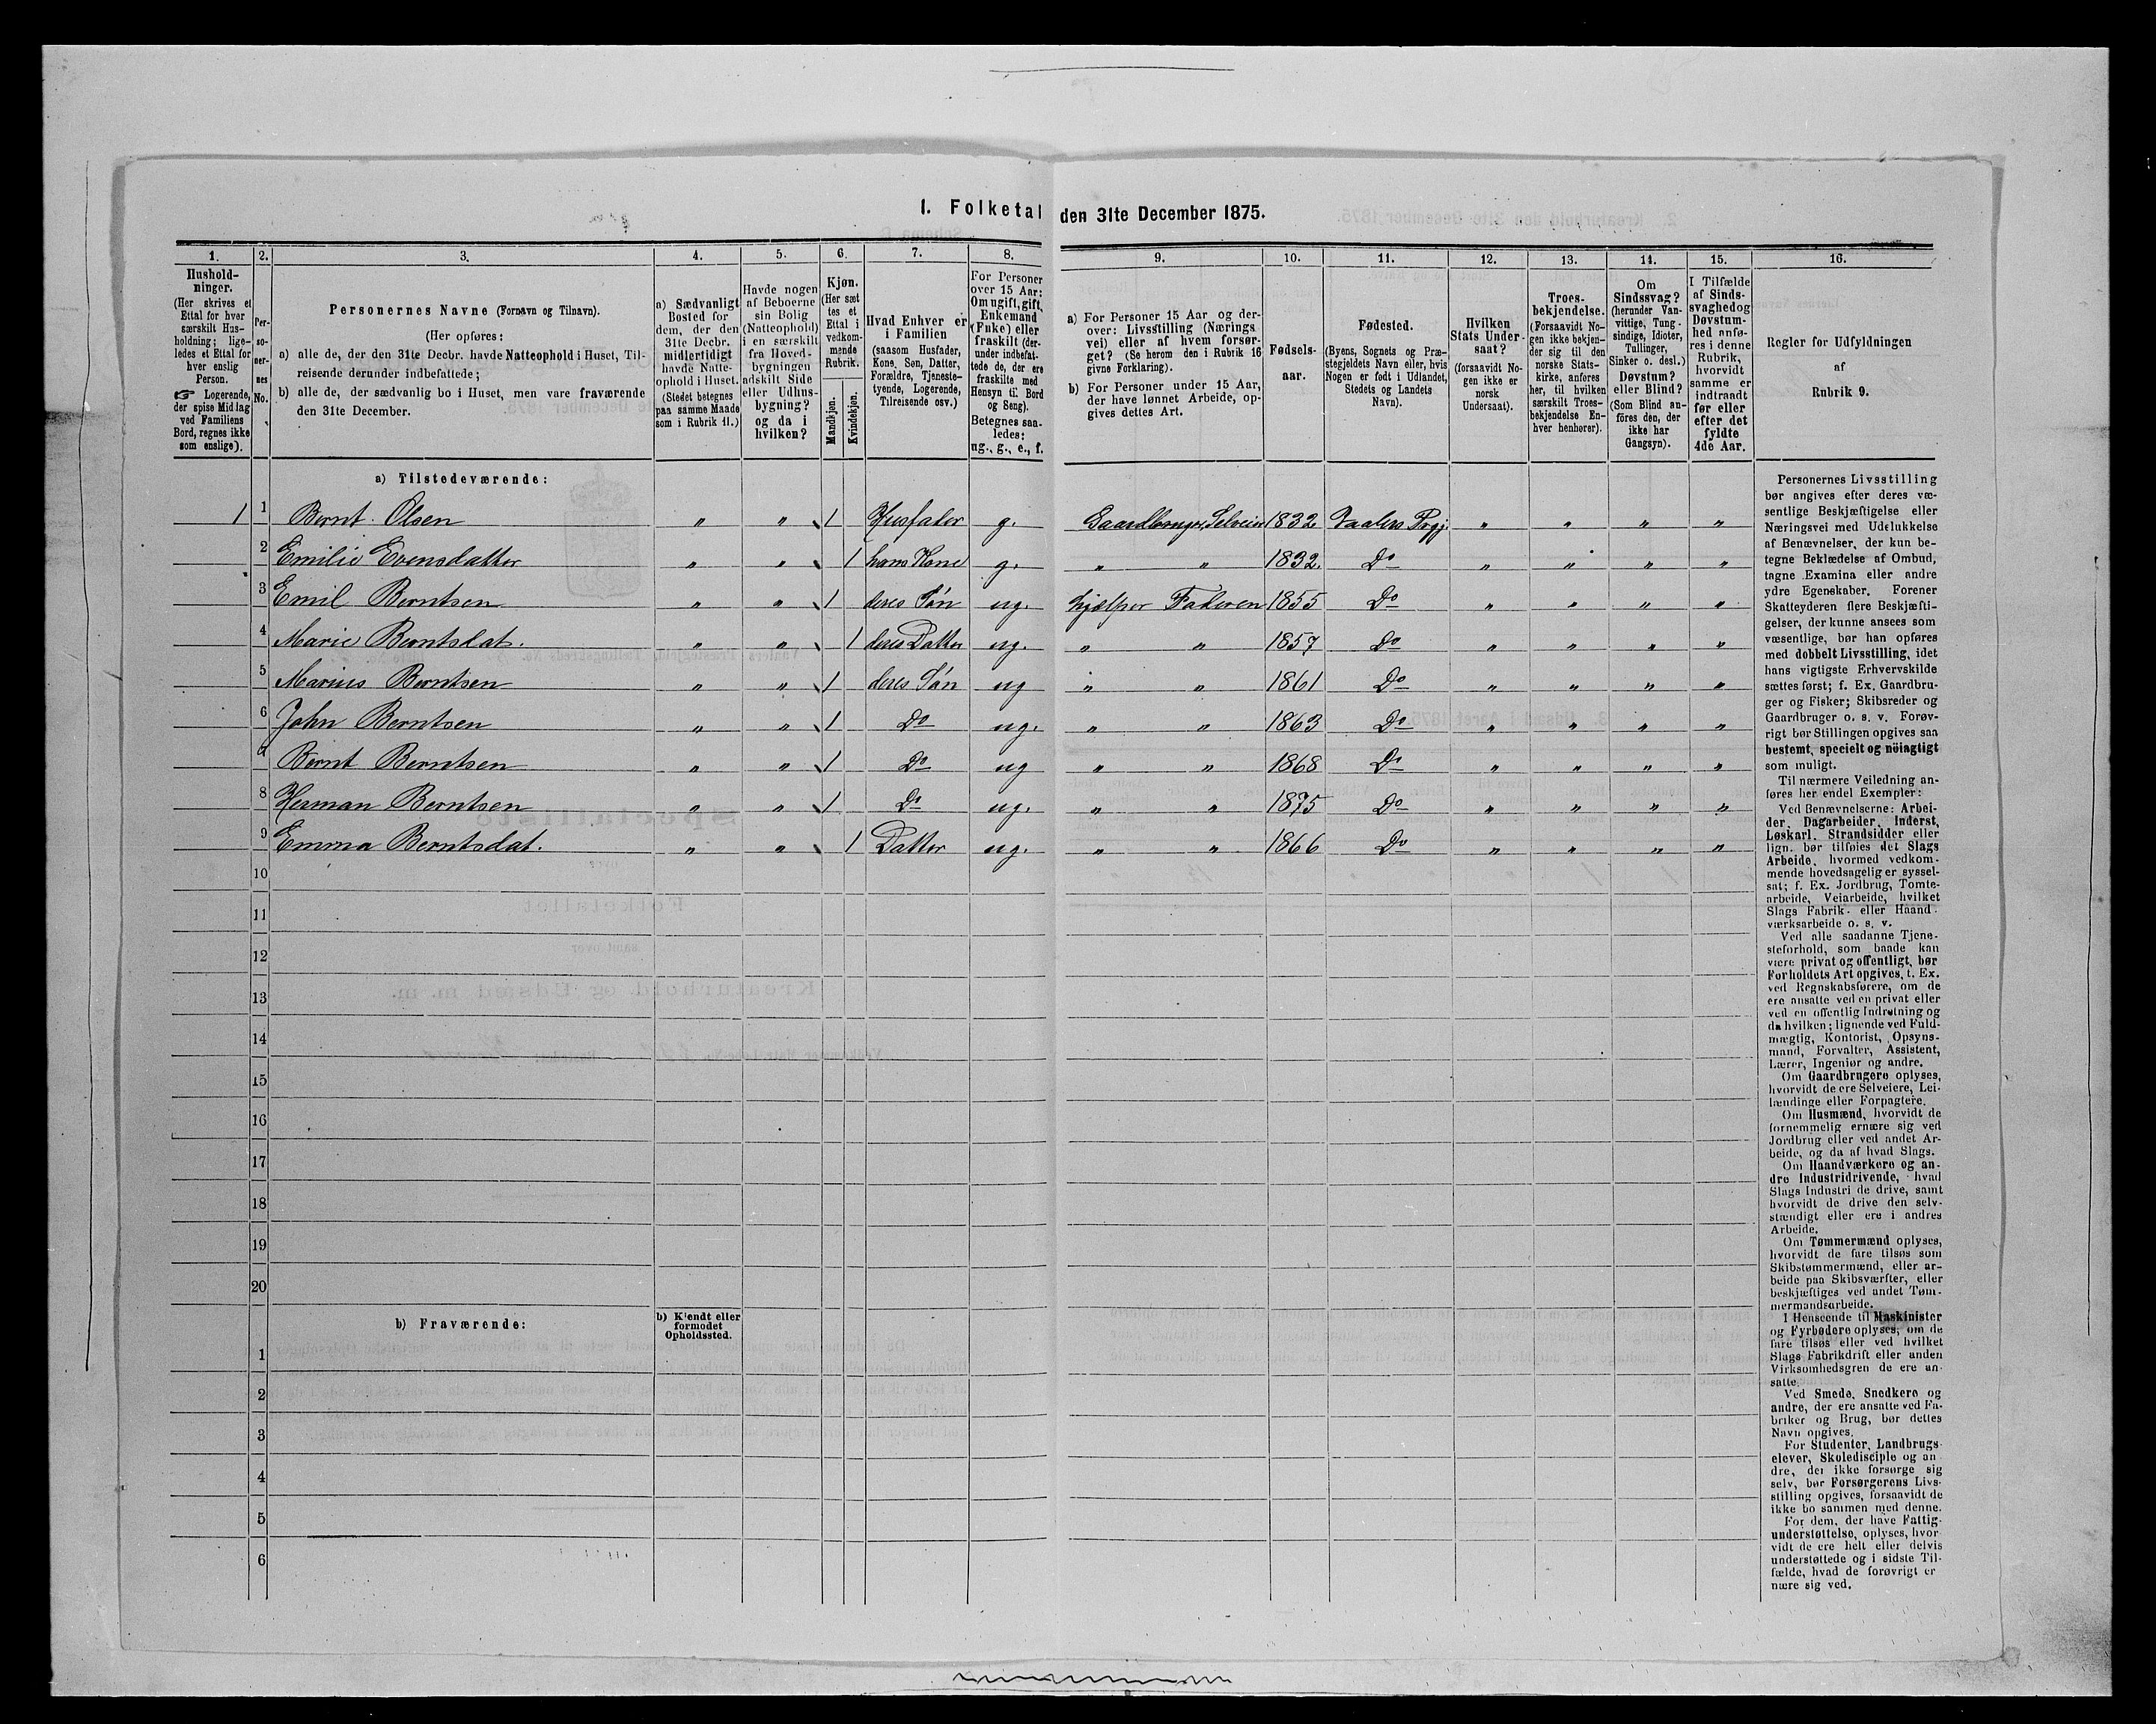 1. Folketal den 31te December 1875.
1.
Hushold-
ninger.
(Her skrives et
Ettal for hver
særskilt Hus-
holdning; lige-
ledes et Ettal for
hver enslig
Person.
☞ Logerende,
der spise Middag
ved Familiens
Bord, regnes ikke
som enslige).
2.
Per-
so-
ner-
nes
No.
3.
Personernes Navne (Fornavn og Tilnavn).
(Her opføres:
a) alle de, der den 31te Decbr. havde Natteophold i Huset, Til-
reisende derunder indbefattede;
b) alle de, der sædvanlig bo i Huset, men vare fraværende
den 31te December.
4.
a) Sædvanligt
Bosted for
dem, der den
31te Decbr.
midlertidigt
havde Natte-
ophold i Huset.
(Stedet betegnes
paa samme Maade
som i Rubrik 11.)
5.
Havde nogen
af Beboerne
sin Bolig
(Natteophold)
i en særskilt
fra Hoved-
bygningen
adskilt Side
eller Udhus-
bygning?
og da i
hvilken?
6.
Kjøn.
(Her sæt
tes et
Ettal i
vedkom-
mende
Rubrik.
Mandkjøn.
Kvindekjøn.
7.
Hvad Enhver er
i Familien
(saasom Husfader,
Kone, Søn, Datter,
Forældre, Tjeneste-
tyende, Logerende,
Tilreisende osv.)
8.
For Personer
over 15 Aar:
Om ugift, gift,
Enkemand
(Enke) eller
fraskilt (der-
under indbefat-
tede de, der ere
fraskilte med
Hensyn til Bord
og Seng).
Betegnes saa-
ledes:
ug., g., e., f.
9.
a) For Personer 15 Aar og der-
over: Livsstilling (Nærings
vei) eller af hvem forsør-
get? (Se herom den i Rubrik 16
givne Forklaring).
b) For Personer under 15 Aar,
der have lønnet Arbeide, op-
gives dettes Art.
10.
Fødsels-
aar.
11.
Fødested.
(Byens, Sognets og Præ-
stegjeldets Navn eller, hvis
Nogen er født i Udlandet,
Stedets og Landets
Navn).
12.
Hvilken
Stats Under-
saat?
(forsaavidt No-
gen ikke er
norsk
Undersaat).
13.
Troes-
bekjendelse.
(Forsaavidt No-
gen ikke bekjen-
der sig til den
norske Stats-
kirke, anføres
her, til hvilken
særskilt Troes-
bekjendelse En-
hver henhører).
14.
Om
Sindssvag?
(herunder Van-
vittige, Tung-
sindige, Idioter,
Tullinger,
Sinker o. desl.)
Døvstum?
eller Blind?
(Som Blind an-
føres den, der
ikke har
Gangsyn).
15.
I Tilfælde
af Sinds-
svaghed og
Døvstum-
hed anfø-
res i denne
Rubrik,
hvorvidt
samme er
indtraadt
før eller
efter det
fyldte
4de Aar.
16.
Regler for Udfyldningen
af
Rubrik 9.
a) Tilstedeværende:
1 1 Bernt Olsen " " 1 Husfader g. Gaardbruger, Selveier 1832 Vaalers Prgj. " " " "
2 Emilie Evensdatter " " 1 hans Kone g. " " 1832. Do " " " "
3 Emil Berntsen " " 1 deres Søn ug. hjælper Faderen 1855 Do " " " "
4 Marie Berntsdat. " " 1 deres Datter ug. " " 1857 Do " " " "
5 Marius Berntsen " " 1 deres Søn ug " " 1861 Do " " " "
6 John Berntsen " " 1 Do ug. " " 1863 Do " " " "
7 Bernt Berntsen " " 1 Do ug " " 1868 Do " " " "
8 Herman Berntsen " " 1 Do ug. " " 1875 Do " " " "
9 Emma Berntsdat. " " 1 Datter ug. " " 1866 Do " " " "
10
11
12
13
14
15
16
17
18
19
20
b) Fraværende:
b) Kjendt eller
formodet
Opholdssted.
1
2
3
4
5
6
Personernes Livsstilling
bør angives efter deres væ-
sentlige Beskjæftigelse eller
Næringsvei med Udelukkelse
af Benævnelser, der kun be-
tegne Beklædelse af Ombud,
tagne Examina eller andre
ydre Egenskaber. Forener
Skatteyderen flere Beskjæfti-
gelser, der kunne ansees som
væsentlige, bør han opføres
med dobbelt Livsstilling, idet
hans vigtigste Erhvervskilde
sættes først; f. Ex. Gaardbru-
ger og Fisker; Skibsreder og
Gaardbruger o. s. v. Forøv-
rigt bør Stillingen opgives saa
bestemt, specielt og nöiagtigt
som muligt.
Til nærmere Veiledning an-
føres her endel Exempler:
Ved Benævnelserne: Arbei-
der, Dagarbeider, Inderst,
Løskarl, Strandsidder eller
lign. bør tilføies det Slags
Arbeide, hvormed vedkom-
mende hovedsagelig er syssel-
sat; f. Ex. Jordbrug, Tomte-
arbeide, Veiarbeide, hvilket
Slags Fabrik- eller Haand-
værksarbeide o. s. v.
Ved alle saadanne Tjene-
steforhold, som baade kan
være privat og offentligt, bør
Forholdets Art opgives, f. Ex.
ved Regnskabsførere, om de
ere ansatte ved en privat eller
ved en offentlig Indretning og
da hvilken; lignende ved Fuld-
mægtig, Kontorist, Opsyns-
mand, Forvalter, Assistent,
Lærer, Ingeniør og andre.
Om Gaardbrugere oplyses,
hvorvidt de ere Selveiere, Lei-
lændinge eller Forpagtere.
Om Husmænd, hvorvidt de
fornemmelig ernære sig ved
Jordbrug eller ved andet Ar-
beide, og da af hvad Slags.
Om Haandværkere og an-
dre Industridrivende, hvad
Slags Industri de drive, samt
hvorvidt de drive den selv-
stændigt eller ere i andres
Arbeide.
Om Tømmermænd oplyses,
hvorvidt de fare tilsøs som
Skibstømmermænd, eller ar-
beide paa Skibsværfter, eller
beskjæftiges ved andet Tøm-
mermandsarbeide.
I Henseende til Maskinister
og Fyrbødere oplyses, om de
fare tilsøs eller ved hvilket
Slags Fabrikdrift eller anden
Virksomhedsgren de ere an-
satte.
Ved Smede, Snedkere og
andre, der ere ansatte ved Fa-
briker og Brug, bør dettes
Navn opgives.
For Studenter, Landbrugs-
elever, Skoledisciple og an-
dre, der ikke forsørge sig
selv, bør Forsørgerens Livs-
stilling opgives, forsaavidt de
ikke bo sammen med denne.
For dem, der have Fattig-
understøttelse, oplyses, hvor-
vidt de ere helt eller delvis
understøttede og i sidste Til-
fælde, hvad de forøvrigt er
nære sig ved.